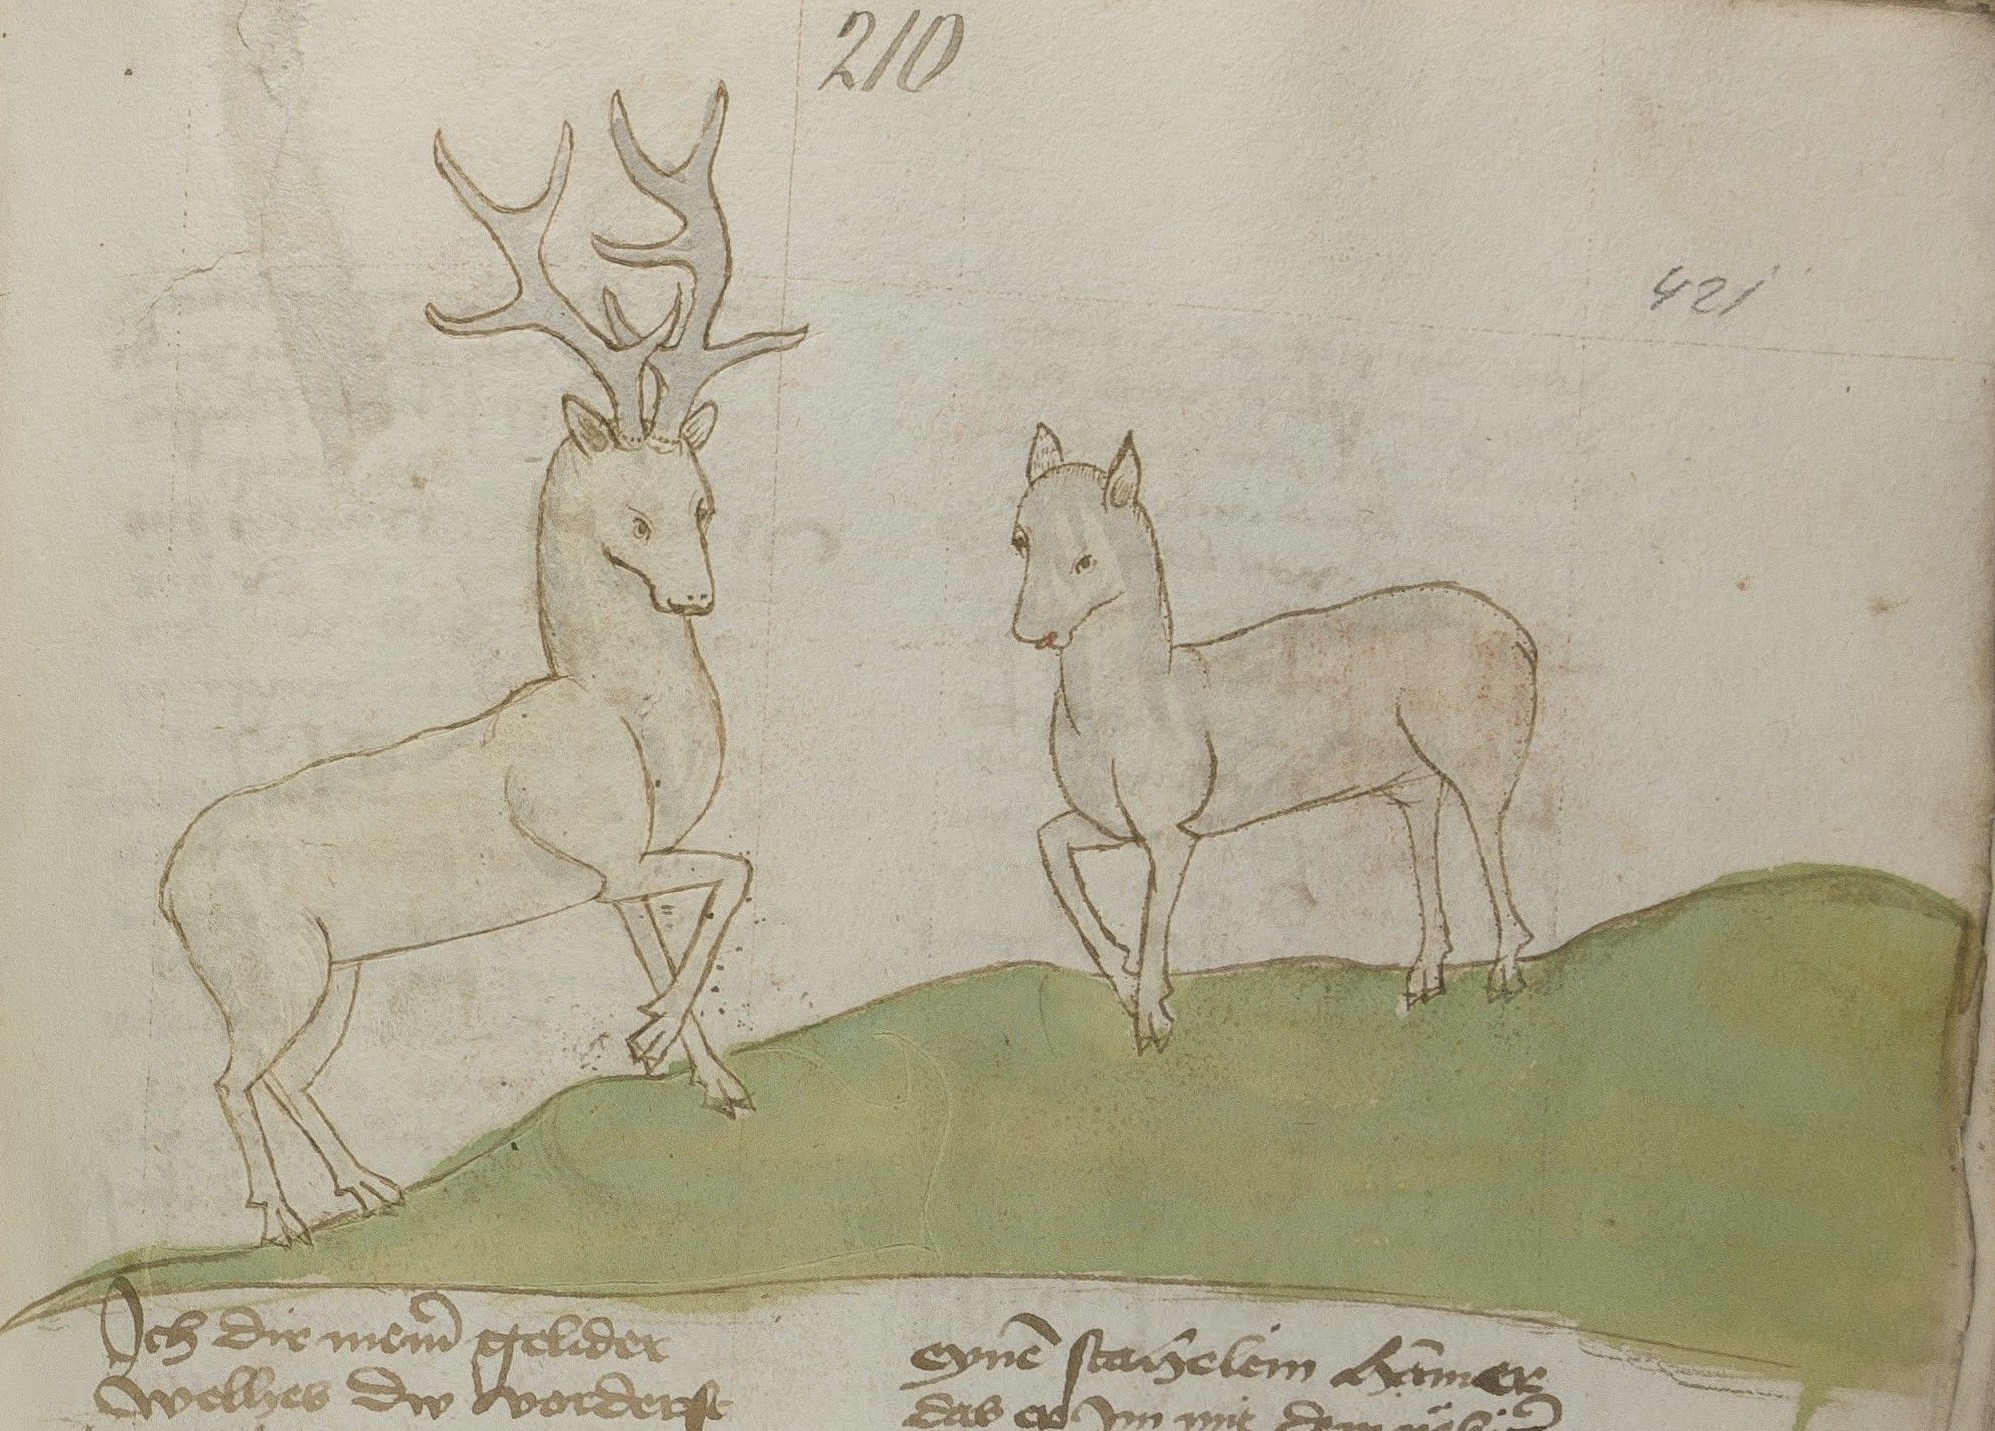 210
421
Ich dir mein̄ gelider
welhes dw vorderst
eynē stahelein hamer
das er Im mit dem